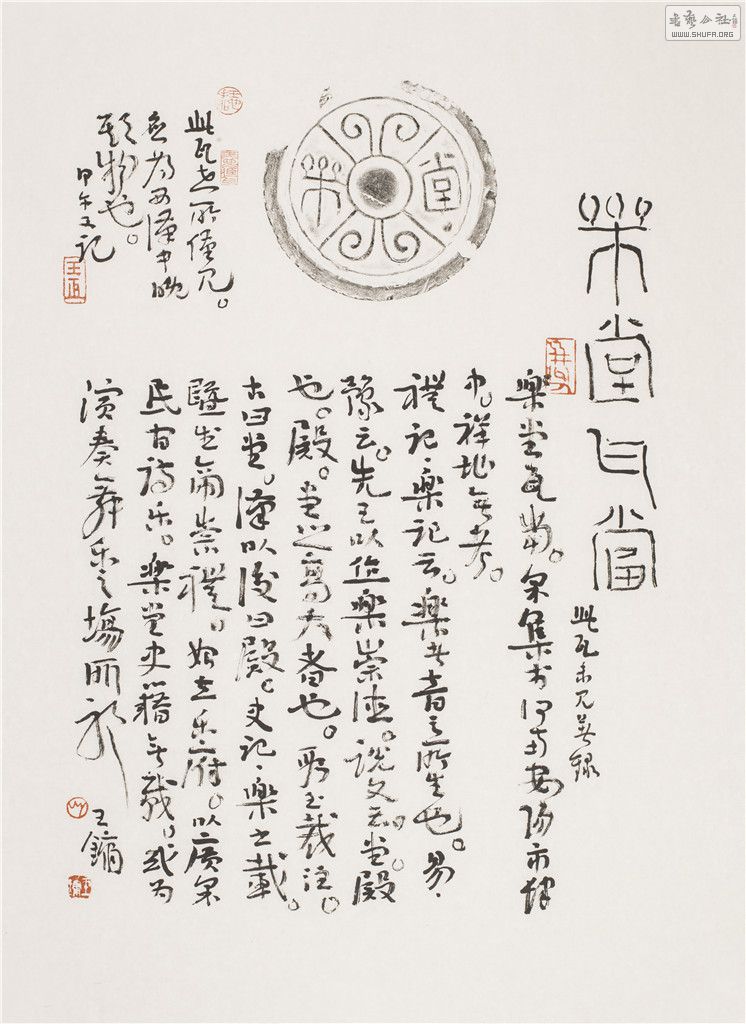 樂堂瓦當
此瓦未見著録
樂堂瓦當。采集於河南安陽市肆
中。祥地無考。
禮記·樂記云。樂者音之所生也。易·
豫云。先王以作樂崇德。説文云。堂。殿
也。殿。堂之高大者也。段玉裁注。
古曰堂。漢以後曰殿。史記·樂書載
民間詩樂。樂堂史籍無載。或为
演奏舞樂之場所歟
王鏞
此瓦世所僅見。
應為西漢中晚
期物也。
甲午又記
樂堂
書艺公社
WWW.SHUFA.ORG